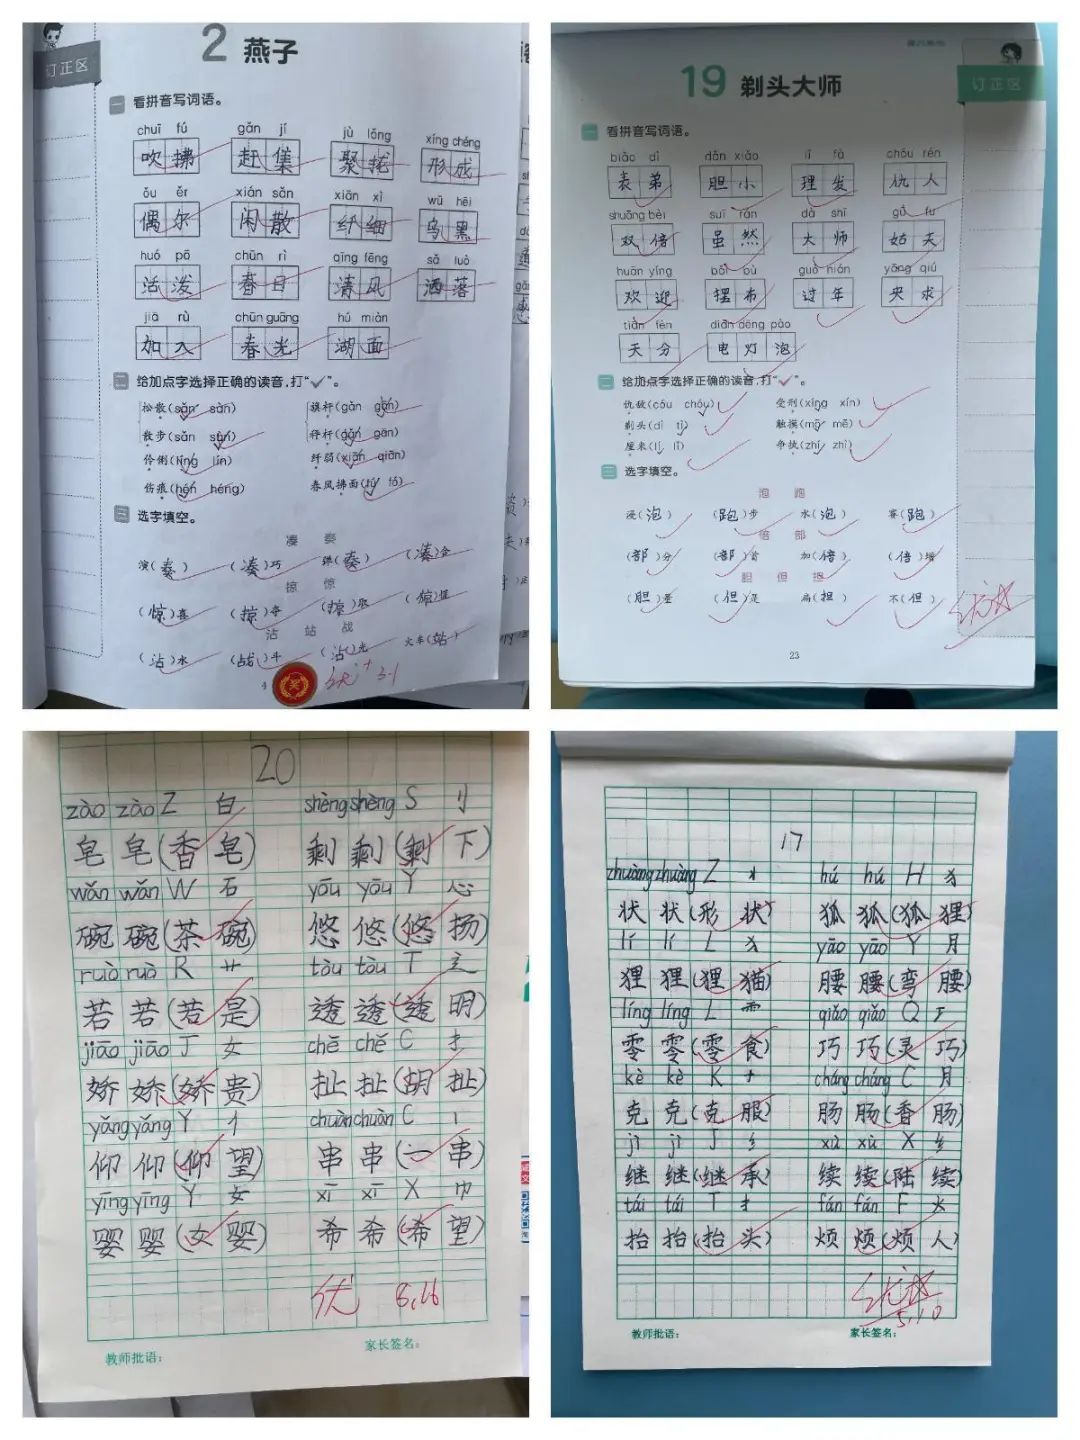 订正区
2 燕子
一 看拼音写词语。
chuī fú gǎn jí jù lǒng xíng chéng
吹拂 赶集 聚拢 形成
ǒu ěr xián sǎn xiān xì wū hēi
偶尔 闲散 纤细 乌黑
huó pō chūn rì qīng fēng sǎ luò
活泼 春日 清风 洒落
jiā rù chūn guāng hú miàn
加入 春光 湖面
二 给加点字选择正确的读音,打“✓”。
松散(sǎn sàn) 旗杆(gǎn gān)
散步(sǎn sàn) 秤杆(gǎn gān)
伶俐(líng lín) 纤弱(xiān qiān)
伤痕(hén héng) 春风拂面(fú fó)
三 选字填空。
凑 奏
演(奏) (凑)巧 弹(奏) (凑)合
掠 惊
(惊)喜 (掠)夺 (掠)取 (惊)慌
沾 站 战
(沾)水 (战)斗 (沾)光 火车(站)
4 优+ 3.1
订正区
19 剃头大师
一 看拼音写词语。
biǎo dì dǎn xiǎo lǐ fà chóu rén
表弟 胆小 理发 仇人
shuāng bèi suī rán dà shī gū fu
双倍 虽然 大师 姑夫
huān yíng bǎi bù guò nián yāng qiú
欢迎 摆布 过年 央求
tiān fèn diàn dēng pào
天分 电灯泡
二 给加点字选择正确的读音,打“✓”。
仇敌(cóu chóu) 受刑(xíng xín)
剃头(dì tì) 触摸(mō mē)
厘米(lí lǐ) 争执(zhí zhì)
三 选字填空。
泡 跑
浸(泡) (跑)步 水(泡) 赛(跑)
倍 部
(部)分 (部)首 加(倍) (倍)增
胆 但 担
(胆)量 (但)是 扁(担) 不(但)
23
20
zào zào Z 白 shèng shèng S 刂
皂 皂(香皂) 剩 剩(剩下)
wǎn wǎn W 石 yōu yōu Y 心
碗 碗(茶碗) 悠 悠(悠扬)
ruò ruò R 艹 tòu tòu T 辶
若 若(若是) 透 透(透明)
jiāo jiāo J 女 chě chě C 扌
娇 娇(娇贵) 扯 扯(胡扯)
yǎng yǎng Y 亻 chuàn chuàn C 丨
仰 仰(仰望) 串 串(一串)
yīng yīng Y 女 xī xī X 巾
婴 婴(女婴) 希 希(希望)
优 5.16
教师批语: 家长签名:
17
zhuàng zhuàng Z 丬 hú hú H 犭
状 状(形状) 狐 狐(狐狸)
lí lí L 犭 yāo yāo Y 月
狸 狸(狸猫) 腰 腰(弯腰)
líng líng L 雨 qiǎo qiǎo Q 工
零 零(零食) 巧 巧(灵巧)
kè kè K 十 cháng cháng C 月
克 克(克服) 肠 肠(香肠)
jì jì J 纟 xù xù X 纟
继 继(继承) 续 续(陆续)
tái tái T 扌 fán fán F 火
抬 抬(抬头) 烦 烦(烦人)
5.10
教师批语: 家长签名: